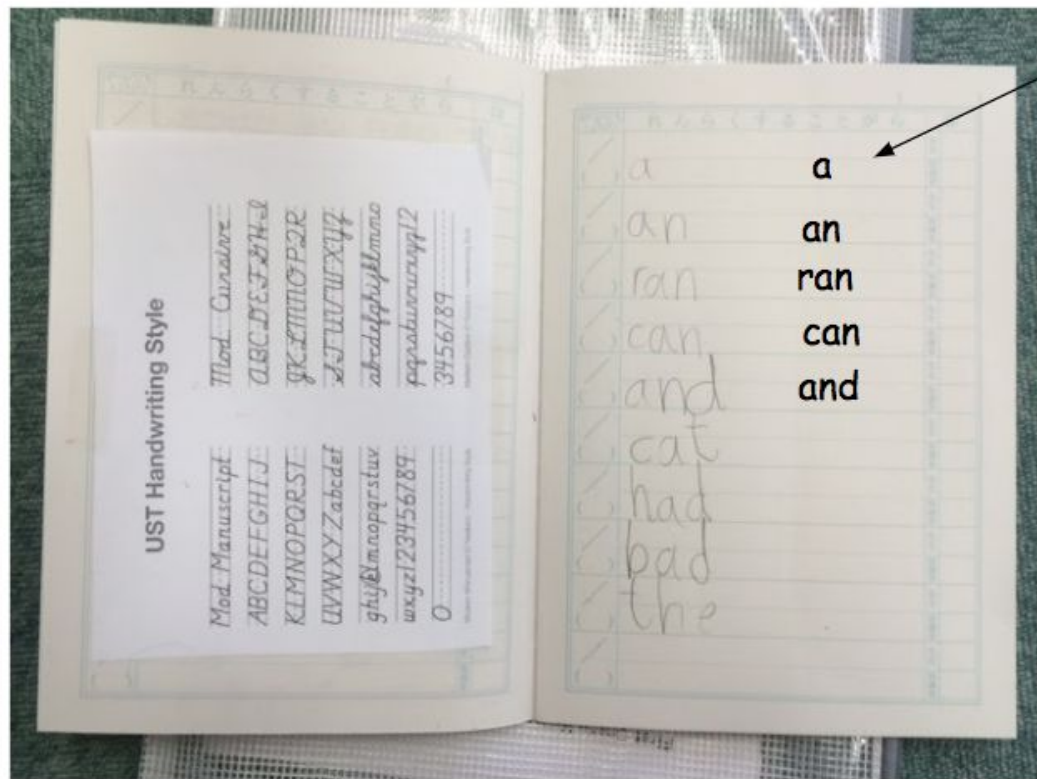 れんらくすることがら
UST Handwriting Style
Mod Manuscript
ABCDEFGHIJ
KLMNOPQRST
UVWXYZabcdef
ghijklmnopqrstuv
wxyz123456789
0
Mod Cursive
ABCDEFGHI
JKLMNOPQR
STUVWXYZ
abcdefghijklmno
pqrstuvwxyz12
3456789
れんらくすることがら
a a
an an
ran ran
can can
and and
cat
had
bad
the